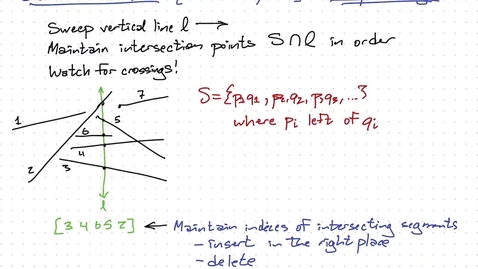 Sweep vertical line l →
Maintain intersection points S∩l in order
Watch for crossings!
S={p₁q₁, p₂q₂, p₃q₃, ...}
where pᵢ left of qᵢ
7
1
5
6
4
2
3
l
[3 4 6 5 2] ← Maintain indices of intersecting segments
- insert in the right place
- delete